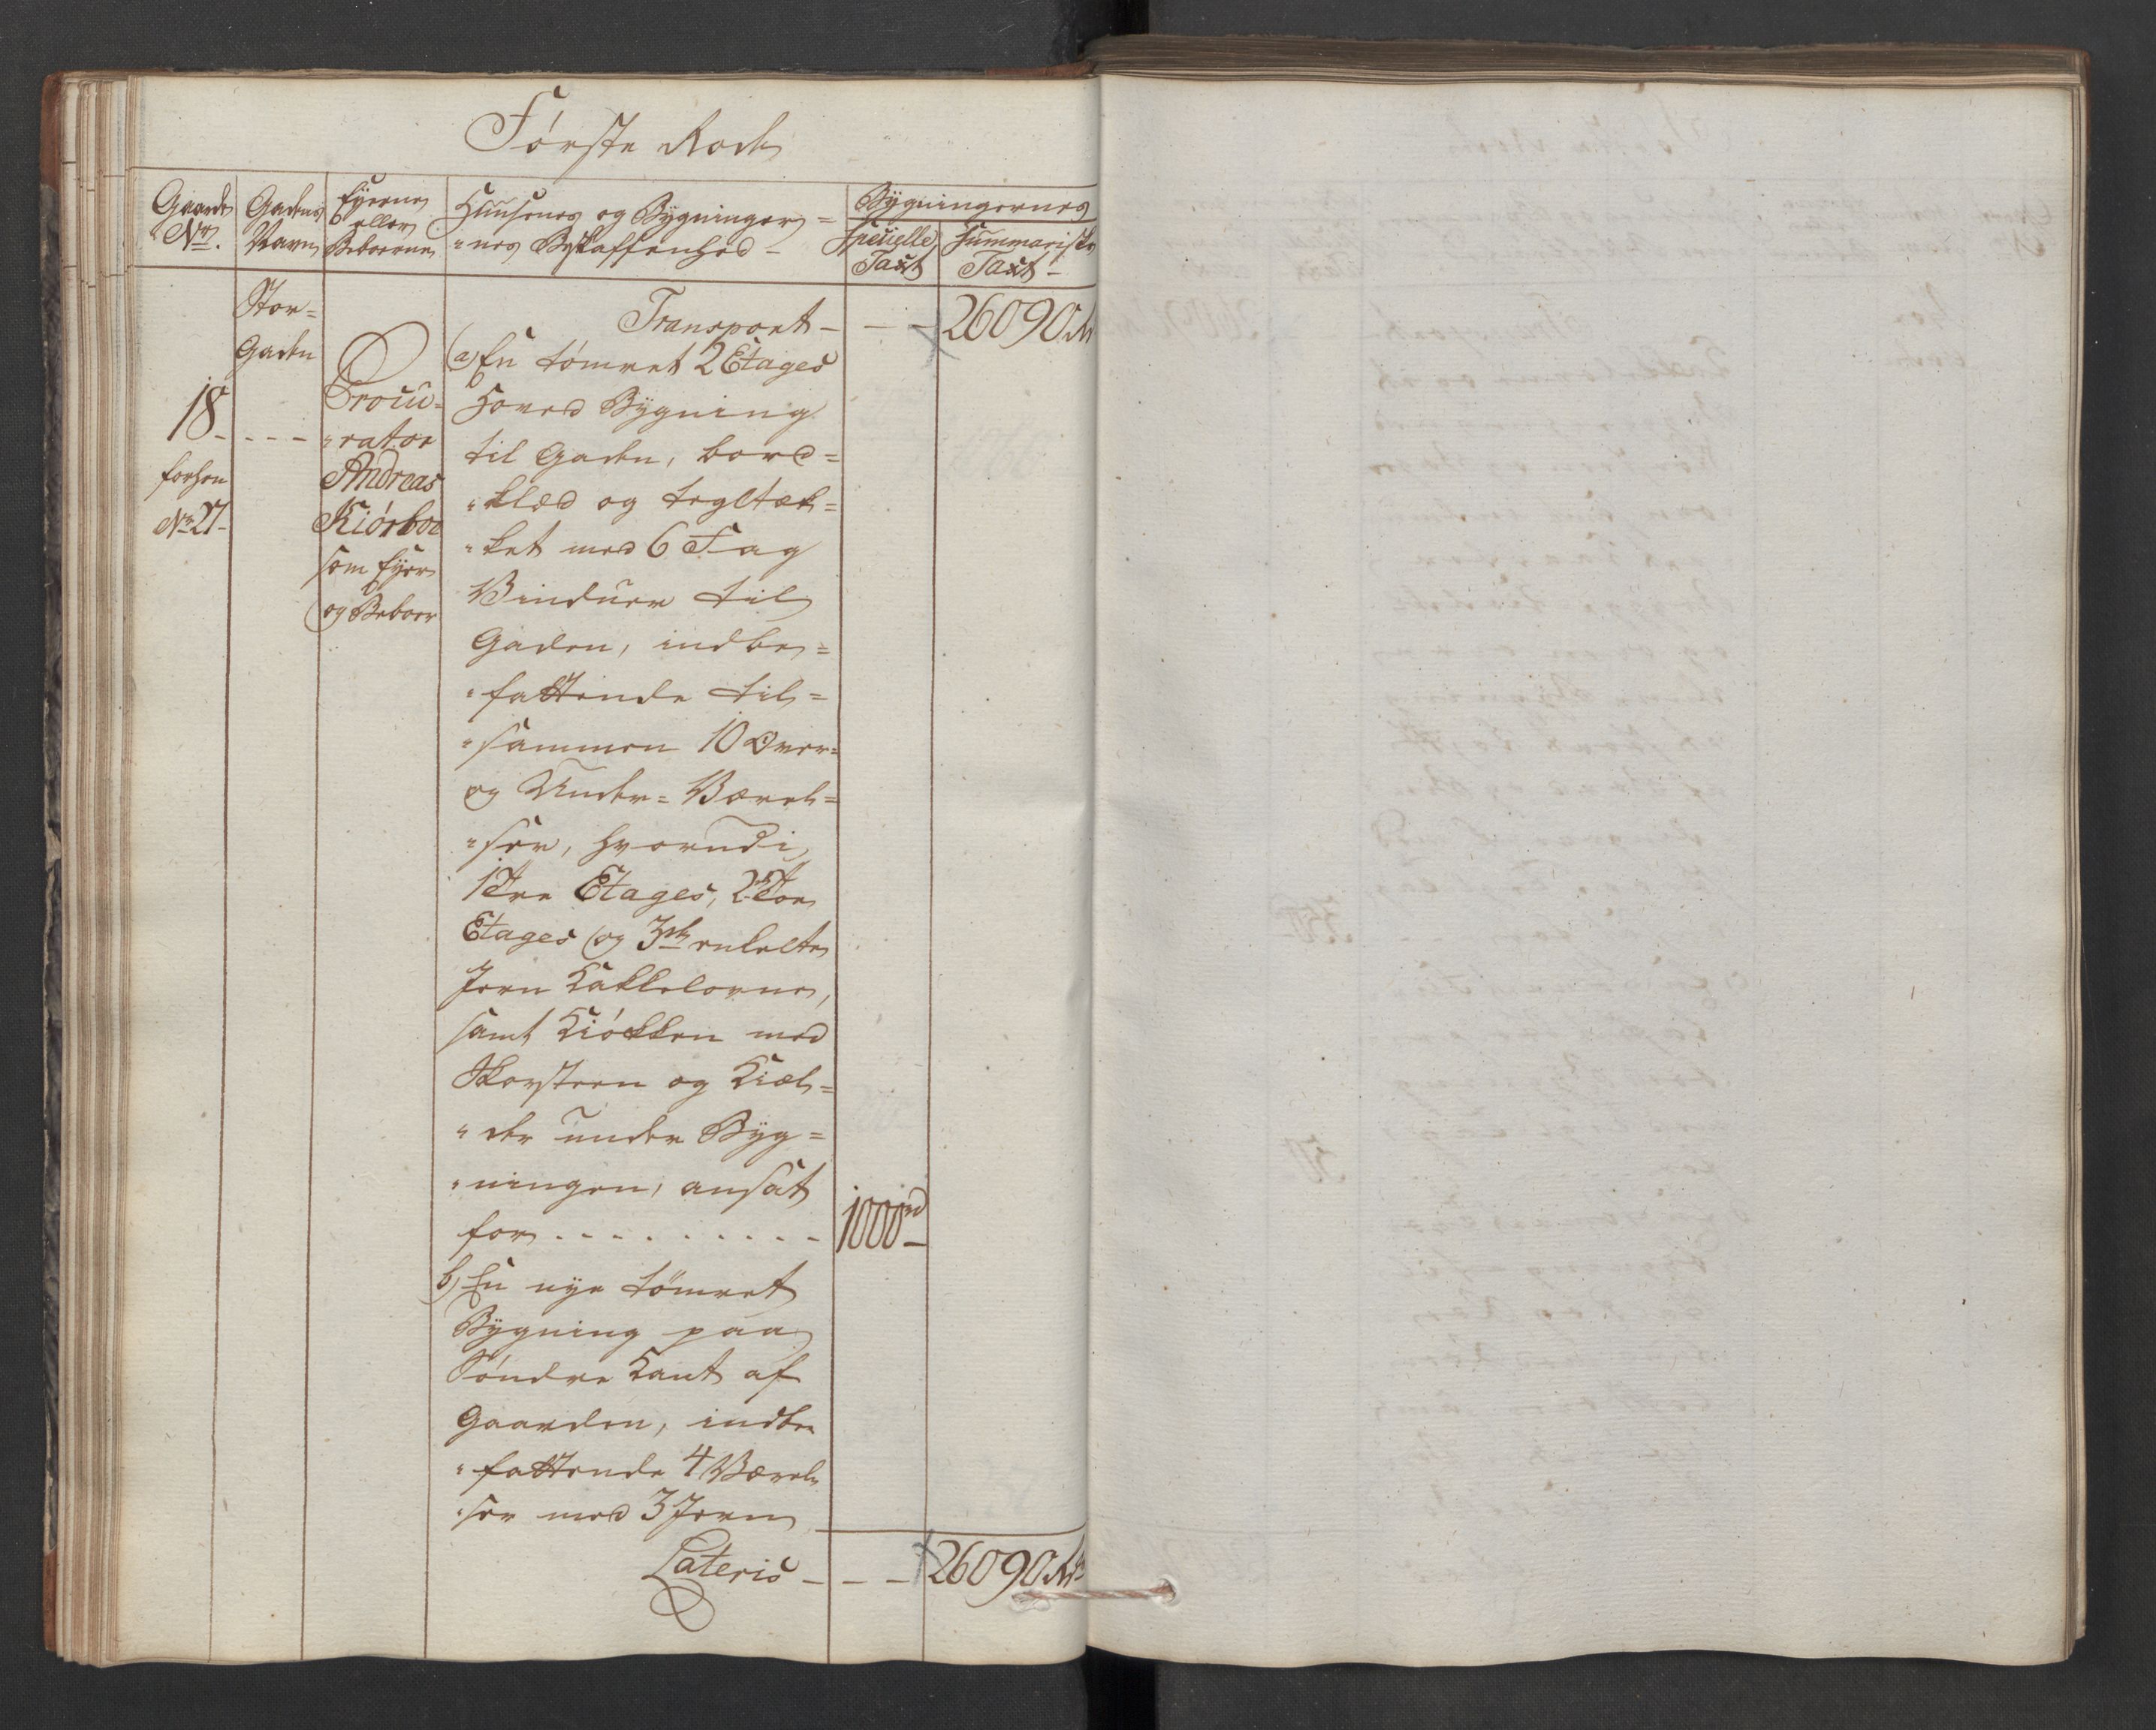 Første Rode
Gaards No.
Gadens Navn
Eyerne eller Beboerne
Huusenes og Bygninger=
"nes Beskaffenhed -
Bygningernes
Specielle Taxt
Summariske Taxt -
Stor=
Gaden
Transport - - - 26090 Rd
18 - - - -
forhen
No 27 -
Procu=
"rator
Andreas
Kiörboe
som Eyer
og Beboer
a) En tömret 2 Etages
Hoved Bygning
til Gaden, bord=
"klæd og tegltæk=
"ket med 6 Fag
Vinduer til
Gaden, indbe=
"fattende til=
"sammen 10 Over=
og Under= Værel=
"ser, hvorudi
1 Tre Etages, 2 Toe
Etages og 3de enkelte
Jern Kakkelovne,
samt Kiökken med
Skorsteen og Kiæl=
"der under Byg=
"ningen, ansat
for . . . . . . . . . 1000 rd -
b) En nye tömret
Bygning paa
Söndre Kant af
Gaarden, indbe
"fattende 4 Værel=
"ser med 3 Jern
Lateris - - - 26090 Rd